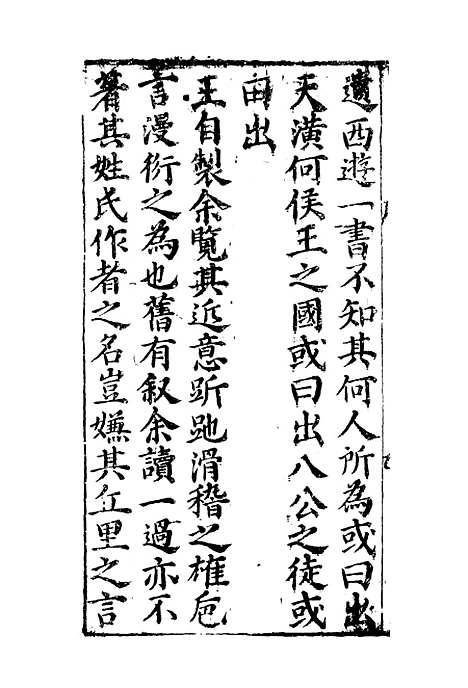 遺西遊一書不知其何人所為或曰出
天潢何侯王之國或曰出八公之徒或
曰出
王自製余覽其近意跅跑滑稽之雄巵
言漫衍之為也舊有叙余讀一過亦不
著其姓氏作者之名豈嫌其丘里之言